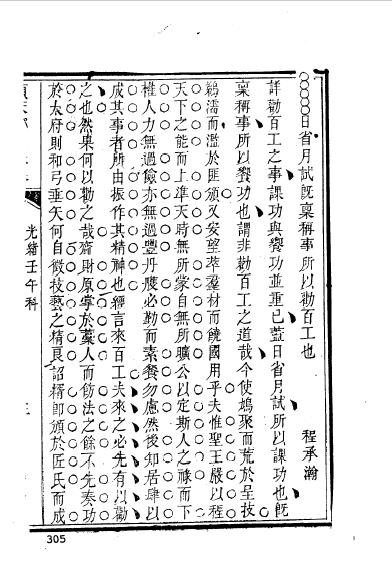 日省月試既稟稱事所以勸百工也 程承瀚
詳勸百工之事課功與饗功並重已蓋日省月試所以課功也既
稟稱事所以饗功也謂非勸百工之道哉今使鳩聚而荒於呈技
鵜濡而濫於匪頒又安望萃羣材而饒國用乎夫惟聖王嚴以程
天下之能而上準天時無所蒙自無所曠公以定斯人之祿而下
權人力無過儉亦無過豐丹雘必勤而素餐勿慮然後知居肆以
成其事者所由振作其精神也經言來百工夫來之必先有以勸
之也然果何以勸之哉齎財原掌於藁人而飭法之餘不先奏功
於太府則和弓垂矢何自徵技藝之精良詔稍即頒於匠氏而成
光緒壬午科
305